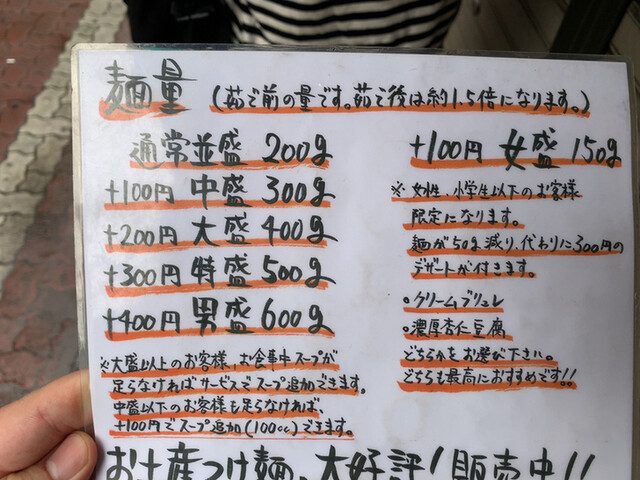 麺量 (茹で前の量です。茹で後は約1.5倍になります。)
通常並盛 200g
+100円 中盛 300g
+200円 大盛 400g
+300円 特盛 500g
+400円 男盛 600g
※大盛以上のお客様、お食事中スープが
足らなければサービスでスープ追加できます。
中盛以下のお客様も足らなければ、
+100円でスープ追加(100cc)できます。
+100円 女盛 150g
※女性・小学生以下のお客様
限定になります。
麺が50g減り、代わりに300円の
デザートが付きます。
・クリームブリュレ
・濃厚杏仁豆腐
どちらかをお選び下さい。
どちらも最高におすすめです!!
お土産つけ麺、大好評!販売中!!